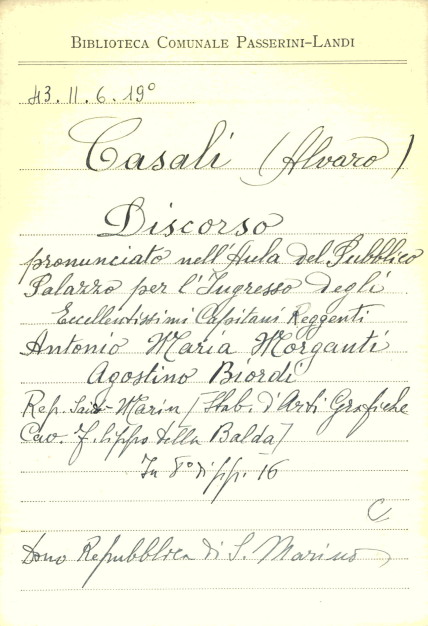 BIBLIOTECA COMUNALE PASSERINI-LANDI
43. II. 6. 19°
Casali (Alvaro)
Discorso
pronunciato nell'Aula del Pubblico
Palazzo per l'Ingresso degli
Eccellentissimi Capitani Reggenti
Antonio Maria Morganti
Agostino Biordi
Rep. San Marin [Stab. d'Arti Grafiche
Cav. Filippo della Balda]
In 8° di pp. 16
C
Dono Repubblica di S. Marino